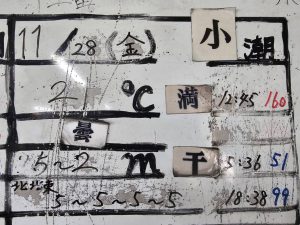 11/28(金) 小潮
2 ℃ 満 12:45 160
曇
2 m 干 5:36 51
北北東 5~5~5~5 18:38 99